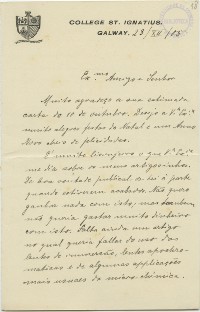 COLLEGE ST. IGNATIUS.
GALWAY, 23/XII/
Ex.mo Amigo e Senhor
Muito agradeço a sua estimada
carta de 10 de outubro. Desejo a V. Ex.a
muito alegres festas do Natal e um Anno
Novo cheio de felicidades.
É muito lisonjeiro o que V. Ex.a
me diz sobre os meus artiguinhos.
De boa vontade publical-os-ia á parte
quando estiverem acabados. Não quero
ganhar nada com isto, mas tambem
não queria gastar muito dinheiro
com isto. Falta ainda um artigo
no qual queria fallar do uso das
lentes de immersão, lentes apochro-
maticas e de algumas applicações
mais usuaes da micro-technica.